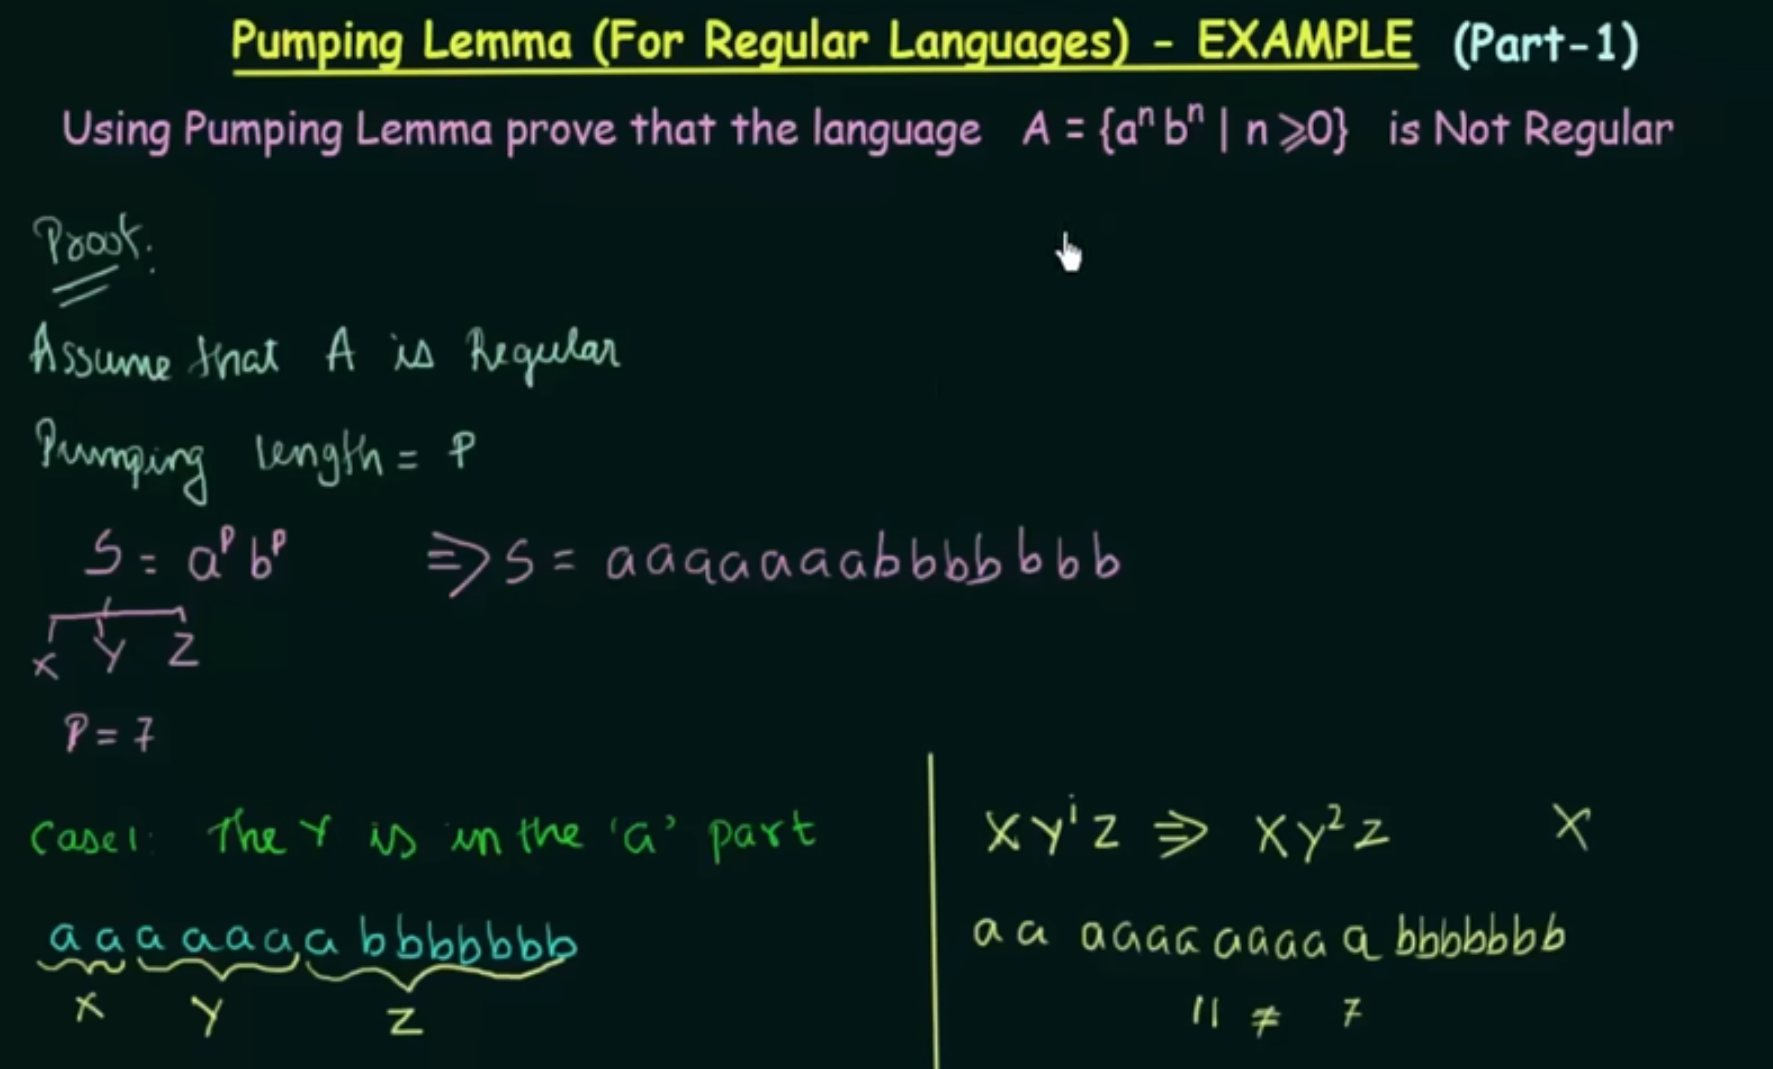 Pumping Lemma (For Regular Languages) - EXAMPLE (Part-1)
Using Pumping Lemma prove that the language A = {aⁿ bⁿ | n ⩾0} is Not Regular
Proof:
Assume that A is Regular
Pumping length = P
S = aᴾ bᴾ ⇒ S = aaaaaaabbbbbbb
X Y Z
P = 7
Case1: The Y is in the 'a' part
aaaaaaabbbbbbb
X Y Z
XYⁱZ ⇒ XY²Z X
aa aaaa aaaa a bbbbbbb
11 ≠ 7